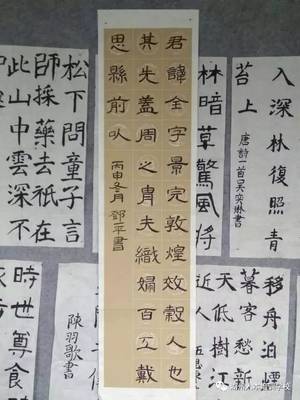 入深林復照青
苔上
唐詩一首吳奕琳書
林暗草驚風將
君諱全字景完敦煌效穀人也
其先蓋周之胄夫織婦百工戴
思縣前以
丙申冬月 鄧平書
松下問童子言
師採藥去祇在
此山中雲深不
移舟泊煙
暮客愁新
天低樹江
近人
陳羽歌書
時世尊食時